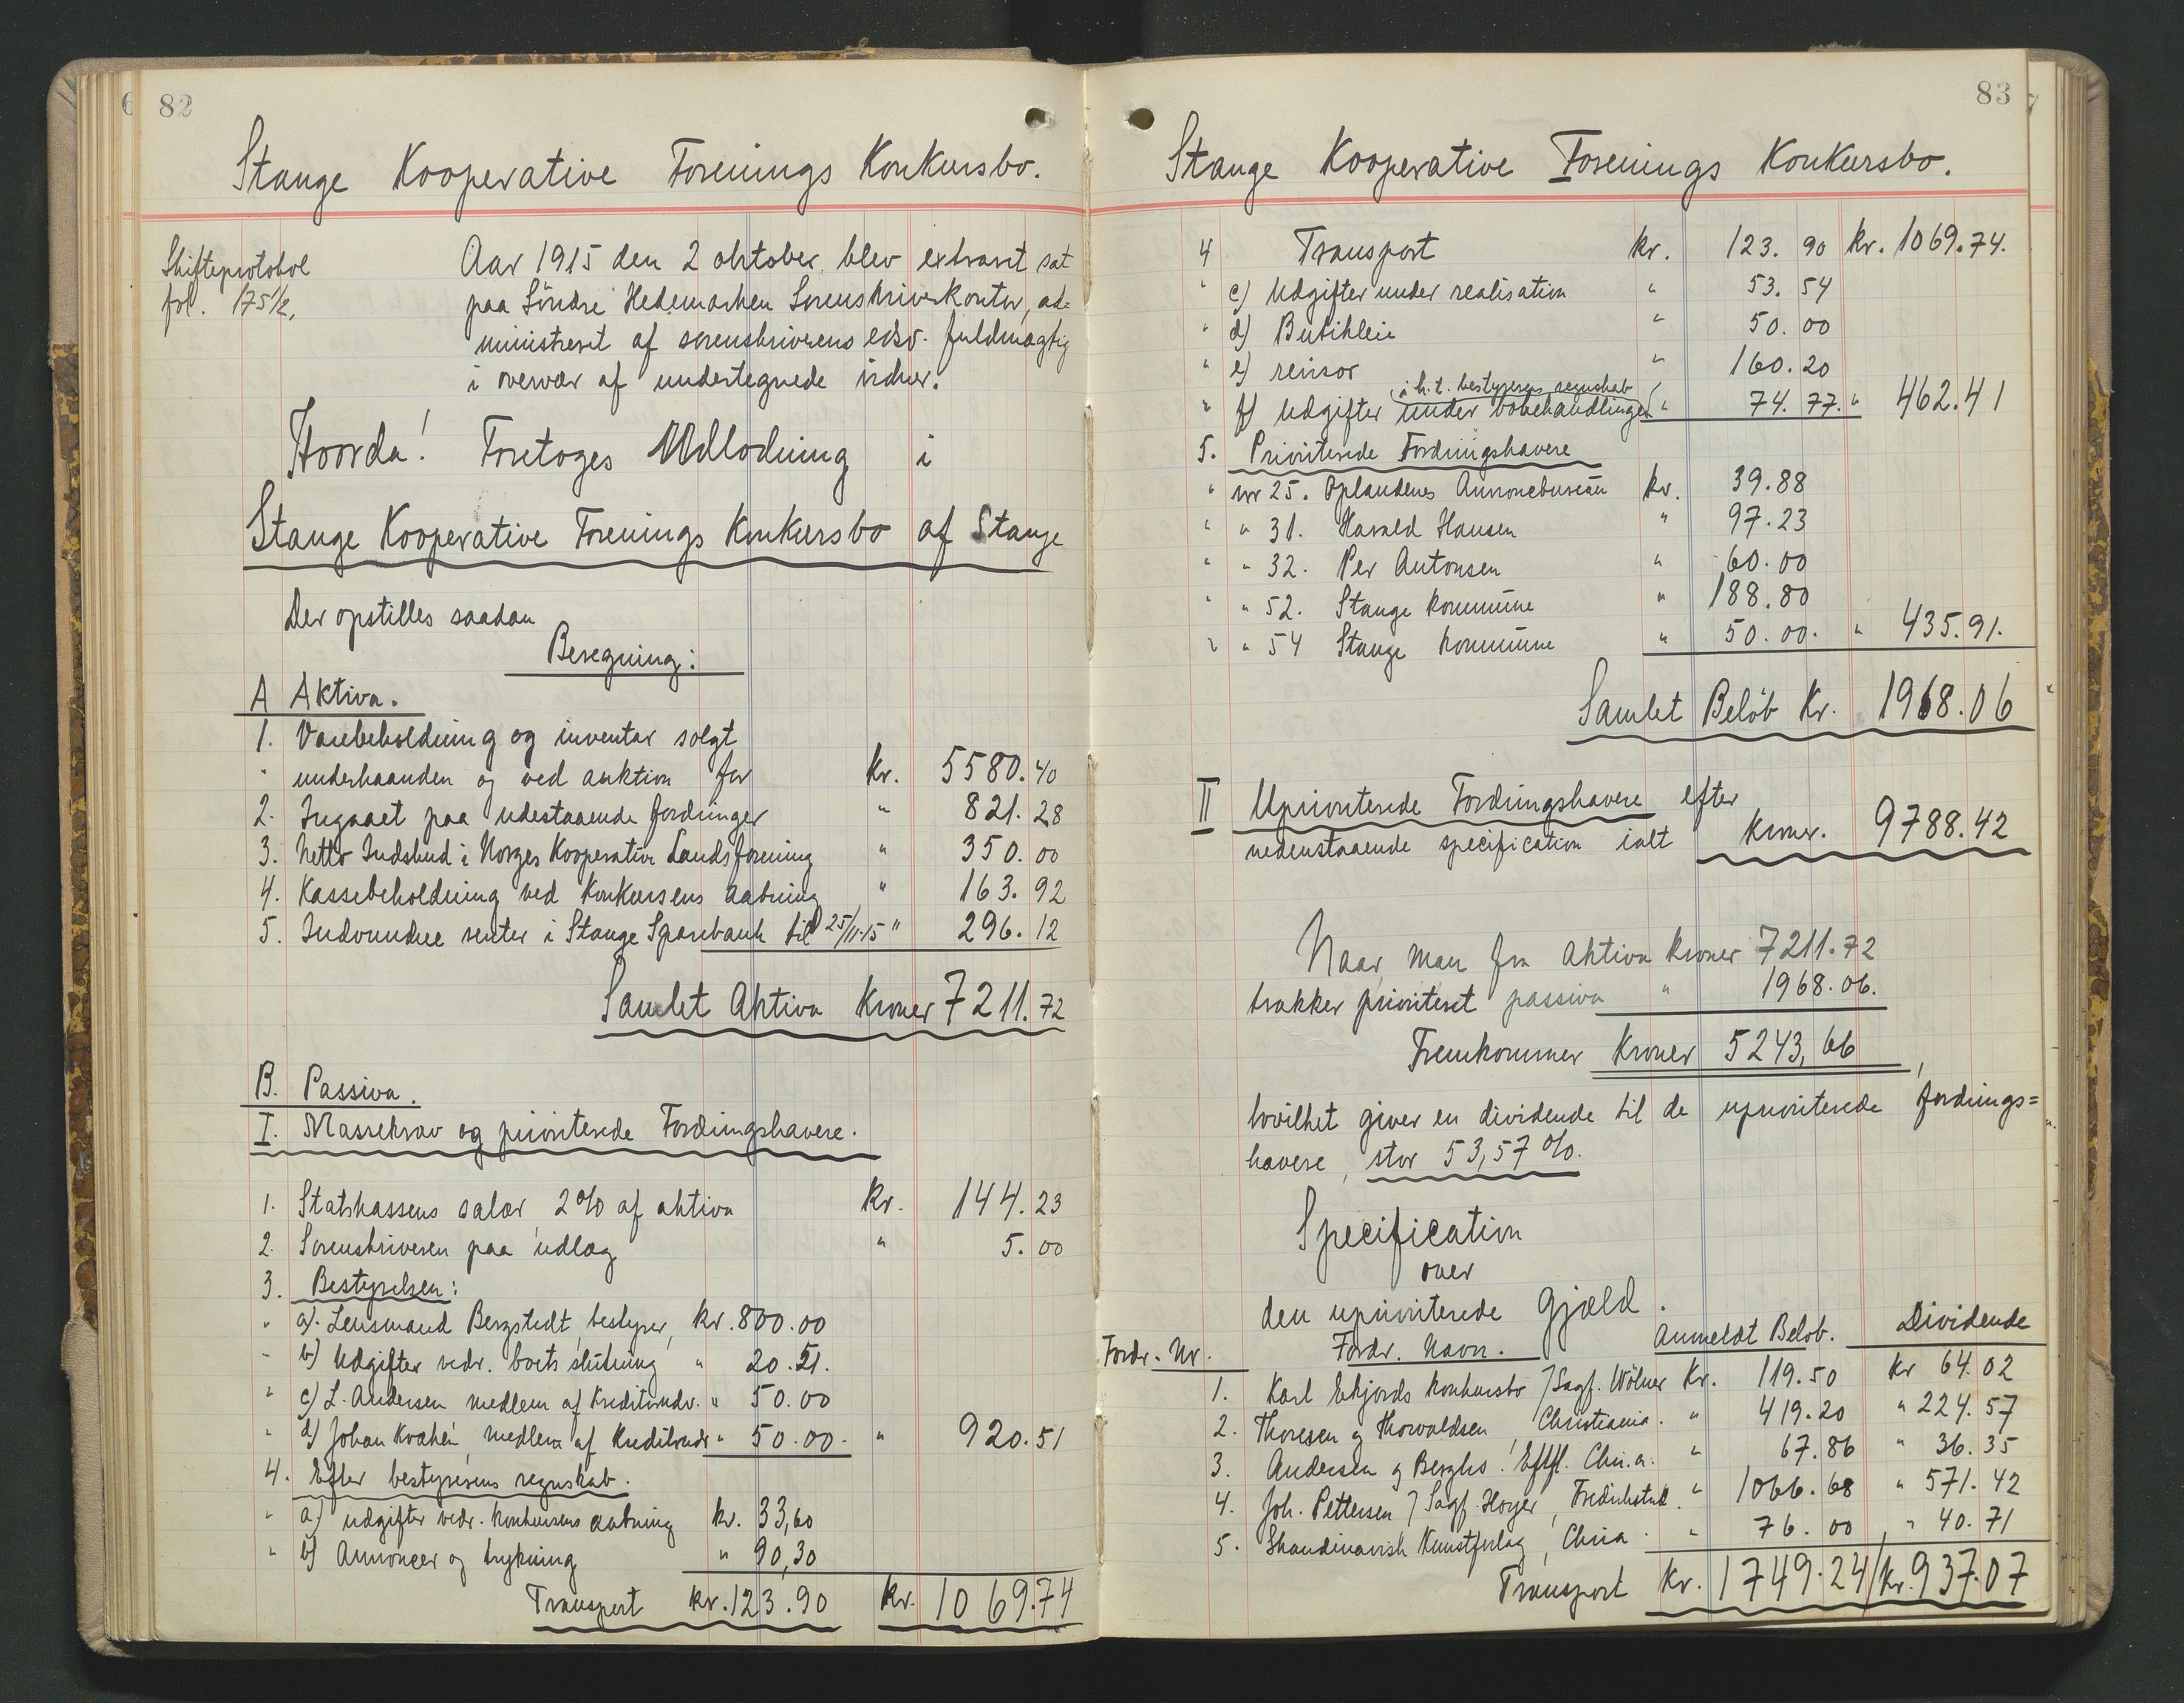 82
Stange Kooperative Forenings Konkursbo.
Skifteprotokol
fol. 175 1/2,
Aar 1915 den 2 oktober blev extraret sat
paa Söndre Hedemarken Sorenskriverkontor, ad-
ministreret af sorenskriverens edsv. fuldmægtig
i overvær af undertegnede vidner.
Hvorda! Foretoges Udlodning i
Stange Kooperative Forenings Konkursbo af Stange
Der opstilles saadan
Beregning:
A Aktiva.
1. Varebeholdning og inventar solgt
" underhaanden og ved auktion for kr. 5580.40
2. Indgaaet paa udestaaende fordringer " 821.28
3. Netto Indskud i Norges Kooperative Landsforening " 350.00
4. Kassebeholdning ved Konkursens aabning " 163.92
5. Indvundne renter i Stange Sparebank til 25/11-15 " 296.12
Samlet Aktiva Kroner 7211.72
B. Passiva.
I. Massekrav og prioriterede Fordringshavere.
1. Statskassens salær 2% af aktiva kr. 144.23
2. Sorenskriveren paa udlæg " 5.00
3. Bestyrelsen:
" a). Lensmand Bergstedt, bestyrer, kr. 800.00
" b) Udgifter vedr. boets slutning " 20.51.
" c) L. Andersen medlem af Kreditorudv. " 50.00
" d) Johan Kvahén, medlem af Kreditorudv " 50.00. " 920.51
4. Efter bestyrerens regnskab.
" a) udgifter vedr. konkursens aabning kr. 33,60
" b) Annoncer og trykning " 90,30
Transport kr. 123.90 kr. 1069.74
83
Stange Kooperative Forenings Konkursbo.
4 Transport kr. 123.90 kr. 1069.74.
" c) Udgifter under realisation " 53.54
" d) Butikleie " 50.00
" e) revisor " 160.20
(i h.t. bestyrerens regnskab)
" f) Udgifter under bobehandlingen " 74.77. " 462.41
5. Prioriterede Fordringshavere
" nr 25. Oplandenes Annoncebureau kr. 39.88
" " 31. Harald Hansen " 97.23
" " 32. Per Antonsen " 60.00
" " 52. Stange kommune " 188.80
" " 54 Stange kommune " 50.00. " 435.91.
Samlet Beløb Kr. 1968.06
II Uprioriterede Fordringshavere efter
nedenstaaende specification ialt kroner. 9788.42
Naar man fra Aktiva kroner 7211.72
trækker prioriteret passiva " 1968.06.
Fremkommer Kroner 5243,66,
hvilket giver en dividende til de uprioriterede fordrings=
havere, stor 53,57%.
Specification
over
den uprioriterede Gjæld.
Fordr. Nr. Fordr. Navn. Anmeldt Beløb. Dividende
1. Karl Ekjords konkursbo / Sagf. Wölner Kr. 119.50 kr 64.02
2. Thoresen og Thorvaldsen, Christiania. " 419.20 " 224.57
3. Andersen & Berghs! Eftfl. Chri.a. " 67.86 " 36.35
4. Joh. Pettersen / Sagf. Høyer, Fredrikstad. " 1066.68 " 571.42
5. Skandinavisk Kunstforlag, Chria. " 76.00, " 40.71
Transport Kr. 1749.24 / kr. 937.07